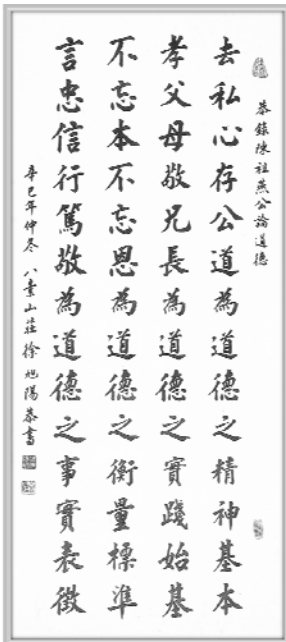 恭錄陳祖燕公論道德
去私心存公道為道德之精神基本
孝父母敬兄長為道德之實踐始基
不忘本不忘恩為道德之衡量標準
言忠信行篤敬為道德之事實表徵
辛巳年仲冬 八素山莊徐旭陽恭書